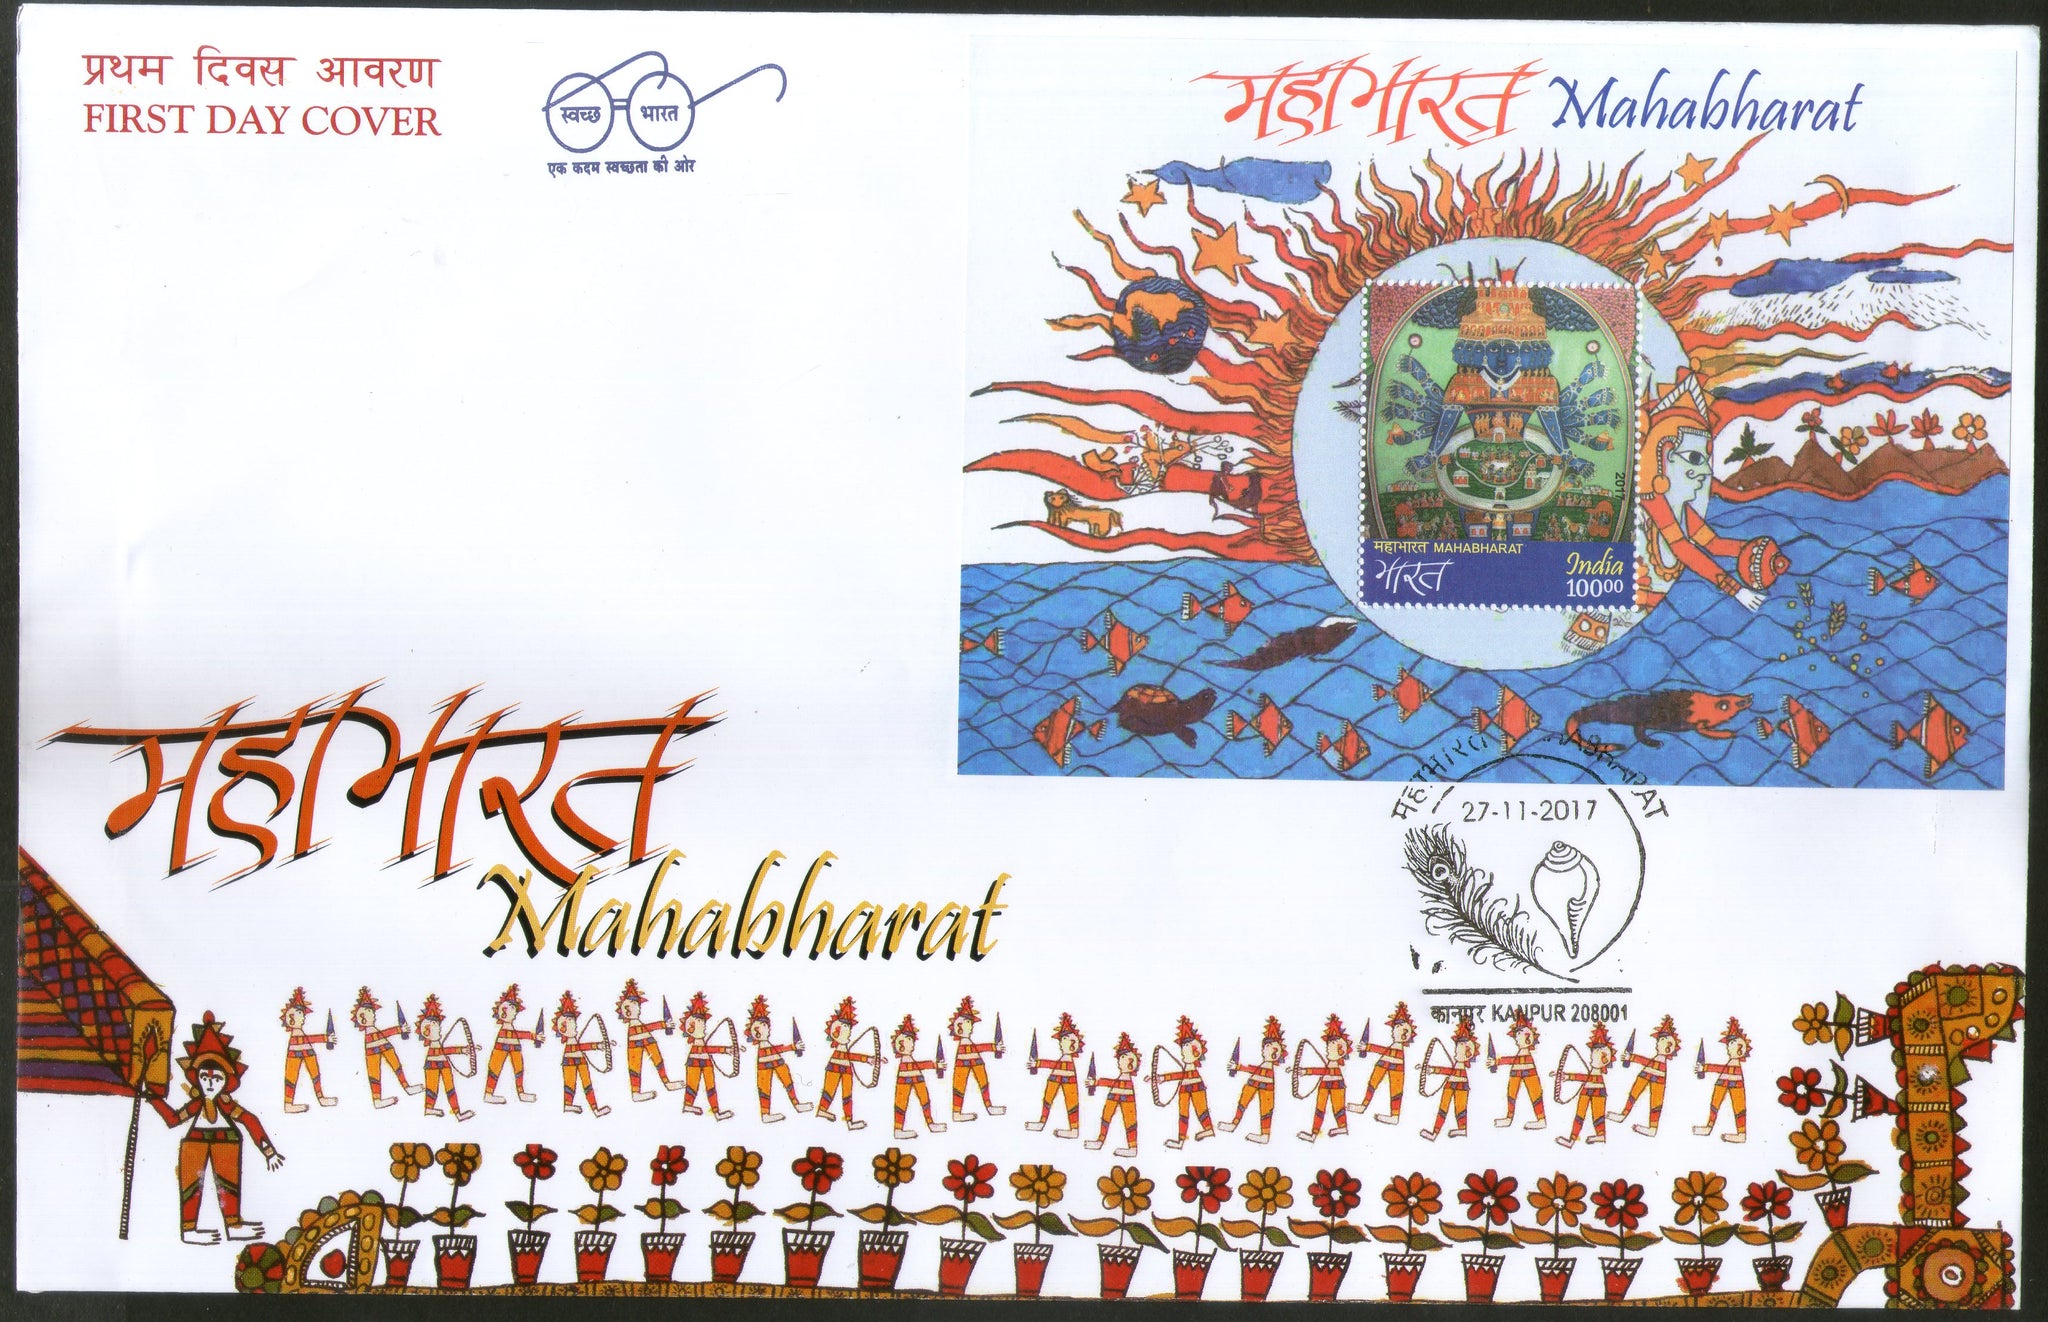 प्रथम दिवस आवरण
FIRST DAY COVER
स्वच्छ भारत
एक कदम स्वच्छता की ओर
महाभारत Mahabharat
2017
महाभारत MAHABHARAT
भारत
India
100.00
महाभारत
Mahabharat
महाभारत
27-11-2017
कानपुर KANPUR 208001